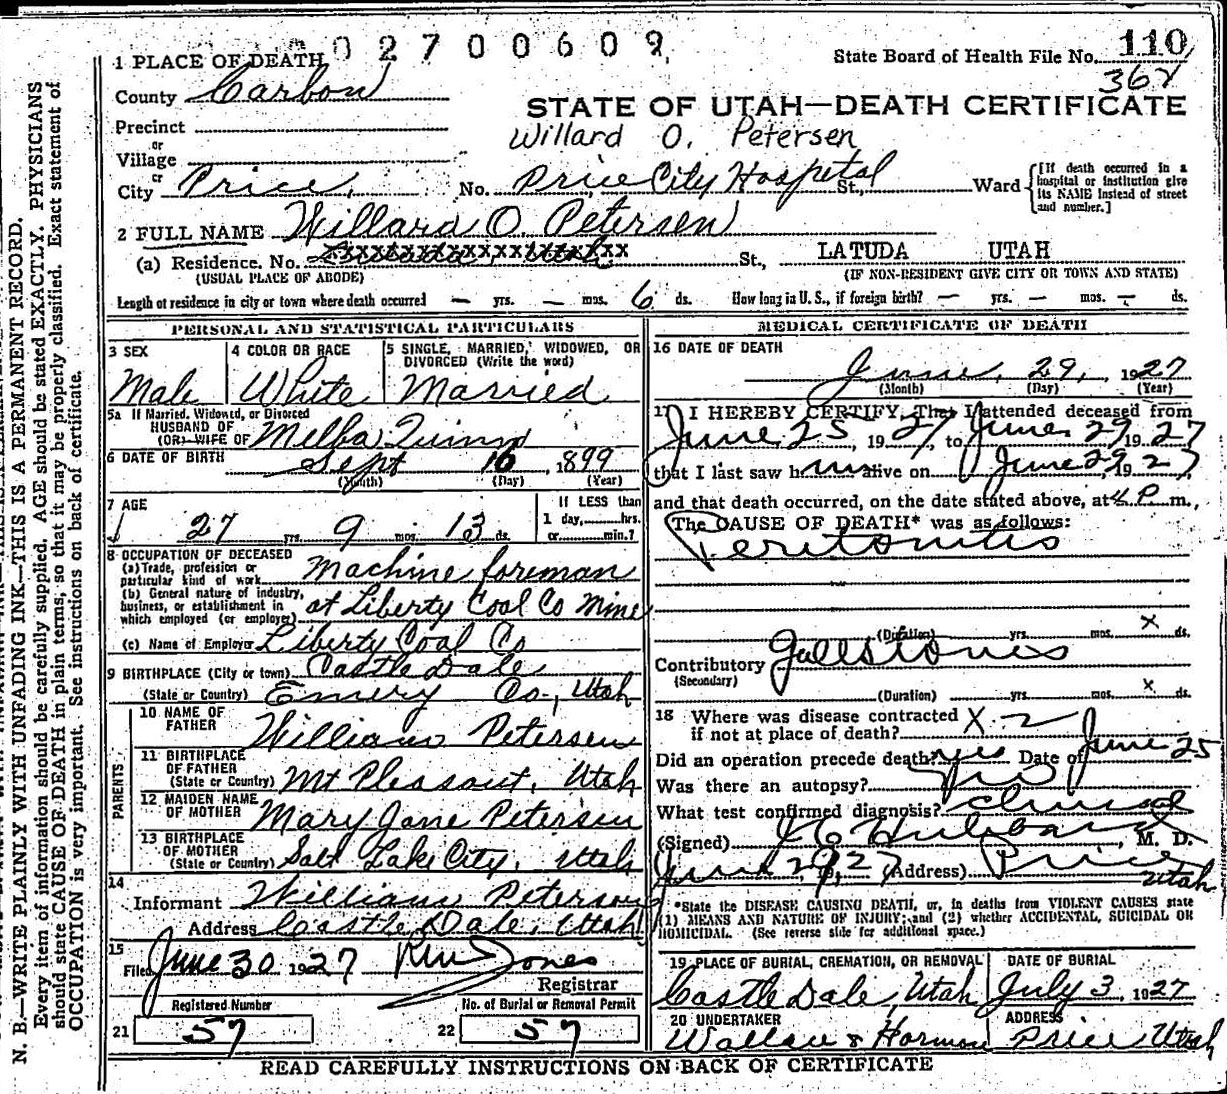 02700609
State Board of Health File No. 110
364
1 PLACE OF DEATH
County Carbon
STATE OF UTAH—DEATH CERTIFICATE
Precinct
or
Willard O. Petersen
Village
or
City Price, No. Price City Hospital St., Ward
[If death occurred in a hospital or institution give its NAME instead of street and number.]
2 FULL NAME Willard O. Petersen
(a) Residence. No. St., LATUDA UTAH
(USUAL PLACE OF ABODE) (IF NON-RESIDENT GIVE CITY OR TOWN AND STATE)
Length of residence in city or town where death occurred — yrs. — mos. 6 ds. How long in U. S., if foreign birth? — yrs. — mos. — ds.
PERSONAL AND STATISTICAL PARTICULARS
3 SEX
Male
4 COLOR OR RACE
White
5 SINGLE, MARRIED, WIDOWED, OR DIVORCED (Write the word)
Married
5a If Married, Widowed, or Divorced
HUSBAND OF
(OR) WIFE OF Melba Quinn
6 DATE OF BIRTH Sept 16, 1899
(Month) (Day) (Year)
7 AGE
27 yrs. 9 mos. 13 ds.
If LESS than
1 day, hrs.
or min.?
8 OCCUPATION OF DECEASED
(a) Trade, profession or
particular kind of work Machine foreman
(b) General nature of industry,
business, or establishment in
which employed (or employer) at Liberty Coal Co Mine
(c) Name of Employer Liberty Coal Co
9 BIRTHPLACE (City or town) Castle Dale
(State or Country) Emery Co., Utah
PARENTS
10 NAME OF
FATHER William Petersen
11 BIRTHPLACE
OF FATHER
(State or Country) Mt Pleasant, Utah
12 MAIDEN NAME
OF MOTHER Mary Jane Petersen
13 BIRTHPLACE
OF MOTHER
(State or Country) Salt Lake City, Utah
14
Informant William Peterson
Address Castle Dale, Utah
15
Filed June 30 1927 Jones
Registrar
Registered Number
21 57
No. of Burial or Removal Permit
22 57
MEDICAL CERTIFICATE OF DEATH
16 DATE OF DEATH
June, 29, 1927
(Month) (Day) (Year)
17 I HEREBY CERTIFY, That I attended deceased from
June 25, 1927, to June 29 1927
that I last saw him alive on June 29 1927
and that death occurred, on the date stated above, at 4 P. m.,
The CAUSE OF DEATH* was as follows:
Peritonitis
(Duration) yrs. mos. X ds.
Contributory Gallstones
(Secondary)
(Duration) yrs. mos. x ds.
18 Where was disease contracted
if not at place of death? X-2
Did an operation precede death? yes Date of June 25
Was there an autopsy? no
What test confirmed diagnosis? clinical
(Signed) M. D.
June 29, 1927 (Address) Price Utah
*State the DISEASE CAUSING DEATH, or, in deaths from VIOLENT CAUSES state
(1) MEANS AND NATURE OF INJURY; and (2) whether ACCIDENTAL, SUICIDAL OR
HOMICIDAL. (See reverse side for additional space.)
19 PLACE OF BURIAL, CREMATION, OR REMOVAL
Castle Dale, Utah
DATE OF BURIAL
July 3, 1927
20 UNDERTAKER
Wallace & Harmon
ADDRESS
Price Utah
READ CAREFULLY INSTRUCTIONS ON BACK OF CERTIFICATE
N. B.—WRITE PLAINLY WITH UNFADING INK—THIS IS A PERMANENT RECORD.
Every item of information should be carefully supplied. AGE should be stated EXACTLY. PHYSICIANS
should state CAUSE OF DEATH in plain terms, so that it may be properly classified. Exact statement of
OCCUPATION is very important. See instructions on back of certificate.